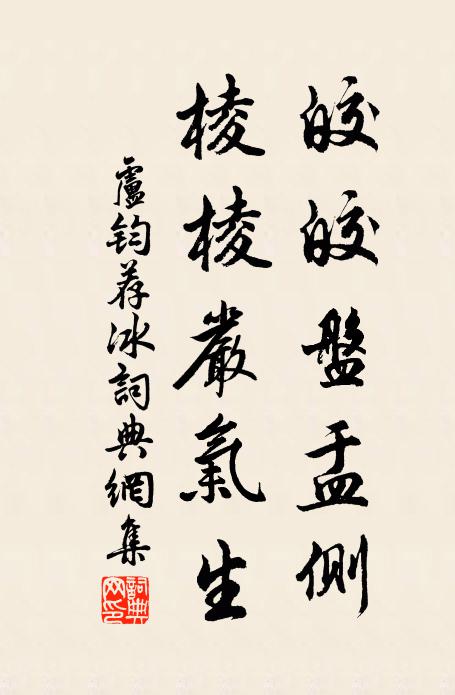 皎皎盤盂側
棱棱嚴氣生
盧鈞荐冰詞典網集
詞典网印